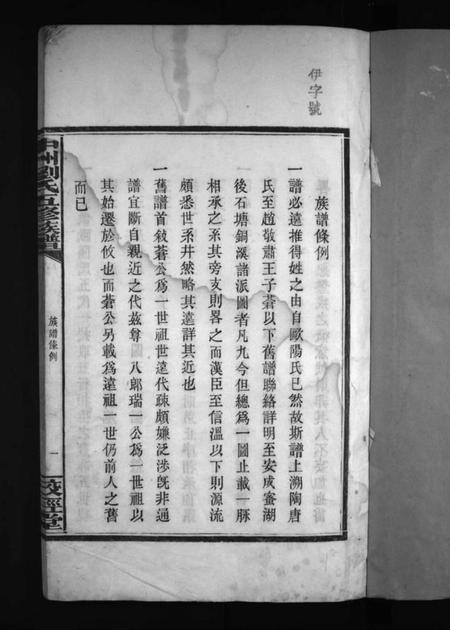 伊字號
族譜條例
一譜必遠推得姓之由自歐陽氏已然故斯譜上溯陶唐
氏至趙敬肅王子蒼以下舊譜聯絡詳明至安成蜜湖
後石塘銅溪諸派圖者凡九今但總爲一圖止載一脉
相承之系其旁支則畧之而漢臣至信溫以下則源流
頗悉世系井然略其遠詳其近也
一舊譜首敍蒼公爲一世祖世遠代疎頗嫌泛涉旣非通
譜宜斷自親近之代茲尊圖八郎瑞一公爲一世祖以
其始遷於攸也而蒼公另載爲遠祖一世仍前人之舊
而已
劉氏五修族譜
族譜條例
一
校經堂